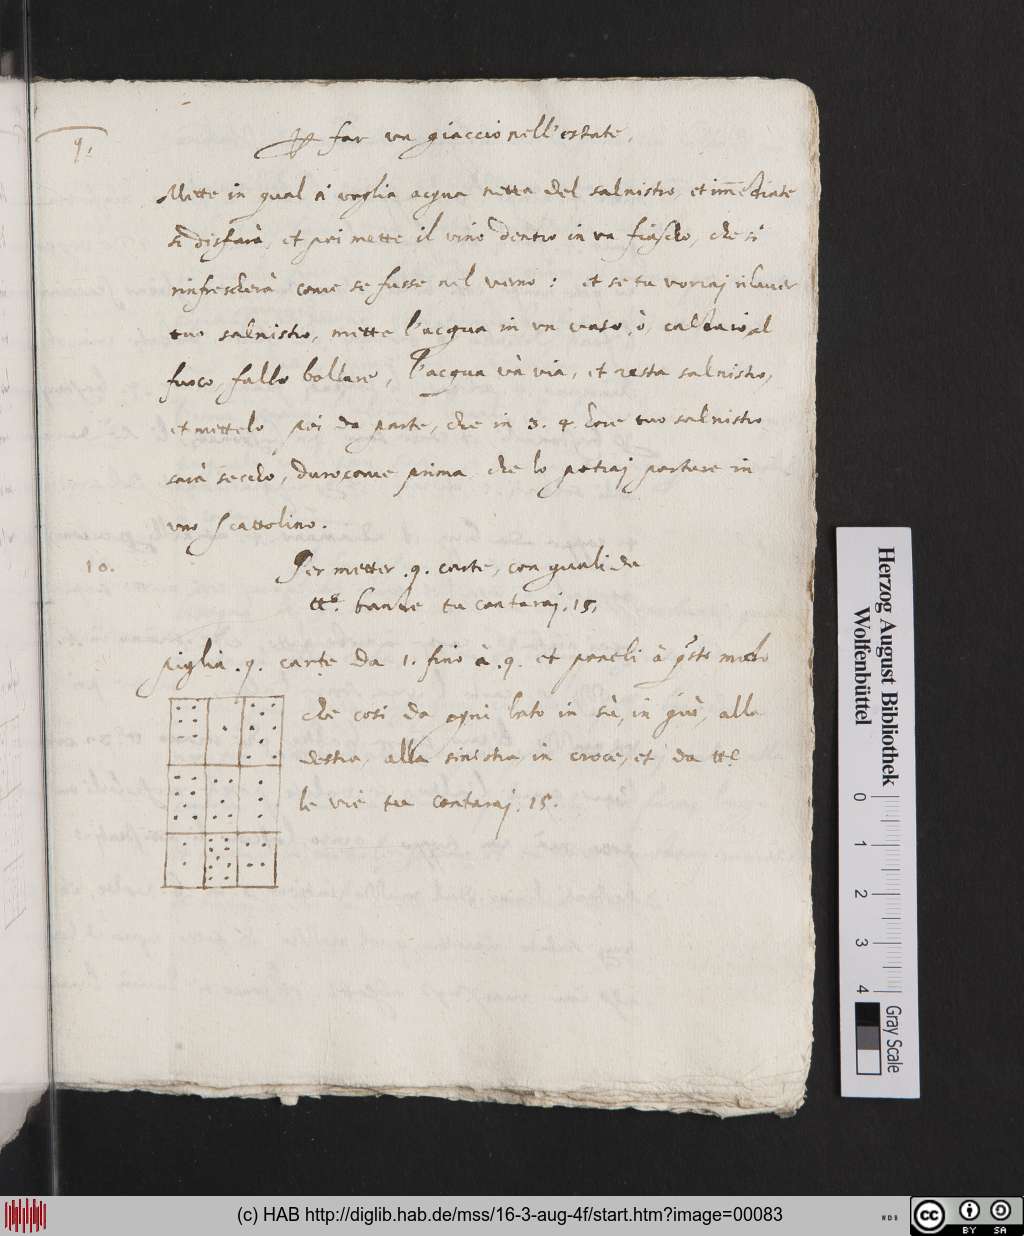 9.
P far un giaccio nell'estate.
Mette in qual si voglia acqua netta del salnistro, et im̄ediate
si disfarà, et poi mette il vino dentro in un fiascho, che si
rinfrescherà come se fusse nel verno: et se tu vorraj rihaver
tuo salnistro, mette l'acqua in un vaso, ò, caldaio al
fuoco, fallo bollire, l'acqua và via, et resta salnistro,
et mettelo poi da parte, che in 3. 4 hore tuo salnistro
sarà seccho, duro come prima che lo potraj portare in
uno scattolino.
10.
Per metter .9. carte, con quali da
tte. bande tu contaraj. 15.
piglia .9. carte da 1. fino à .9. et poneli à qsto modo
che cosi da ogni lato in sù, in giù, alla
destra, alla sinistra, in croce, et da tte
le vie tu contaraj. 15.
Herzog August Bibliothek
Wolfenbüttel
0 1 2 3 4
Gray Scale
(c) HAB http://diglib.hab.de/mss/16-3-aug-4f/start.htm?image=00083
WDB
cc BY SA